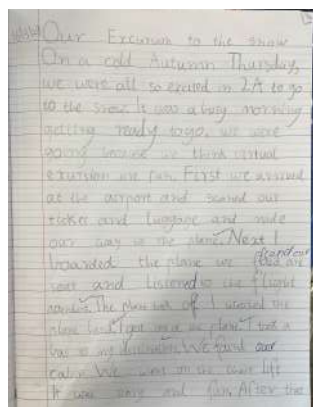 Our Excursion to the snow
On a cold Autumn Thursday,
we were all so excited in 2A to go
to the snow. It was a busy morning
getting ready to go, we were
going because we think virtual
excursion are fun. First we arrived
at the airport and scaned our
ticket and luggage and made
our way to the plane. Next I
boarded the plane we found our
seat and listend to the flight
The plane took of. I
plane land. I got off the plane. I took a
bus to my We found our
cabin. We went on the chair lift
It was and fun. After the